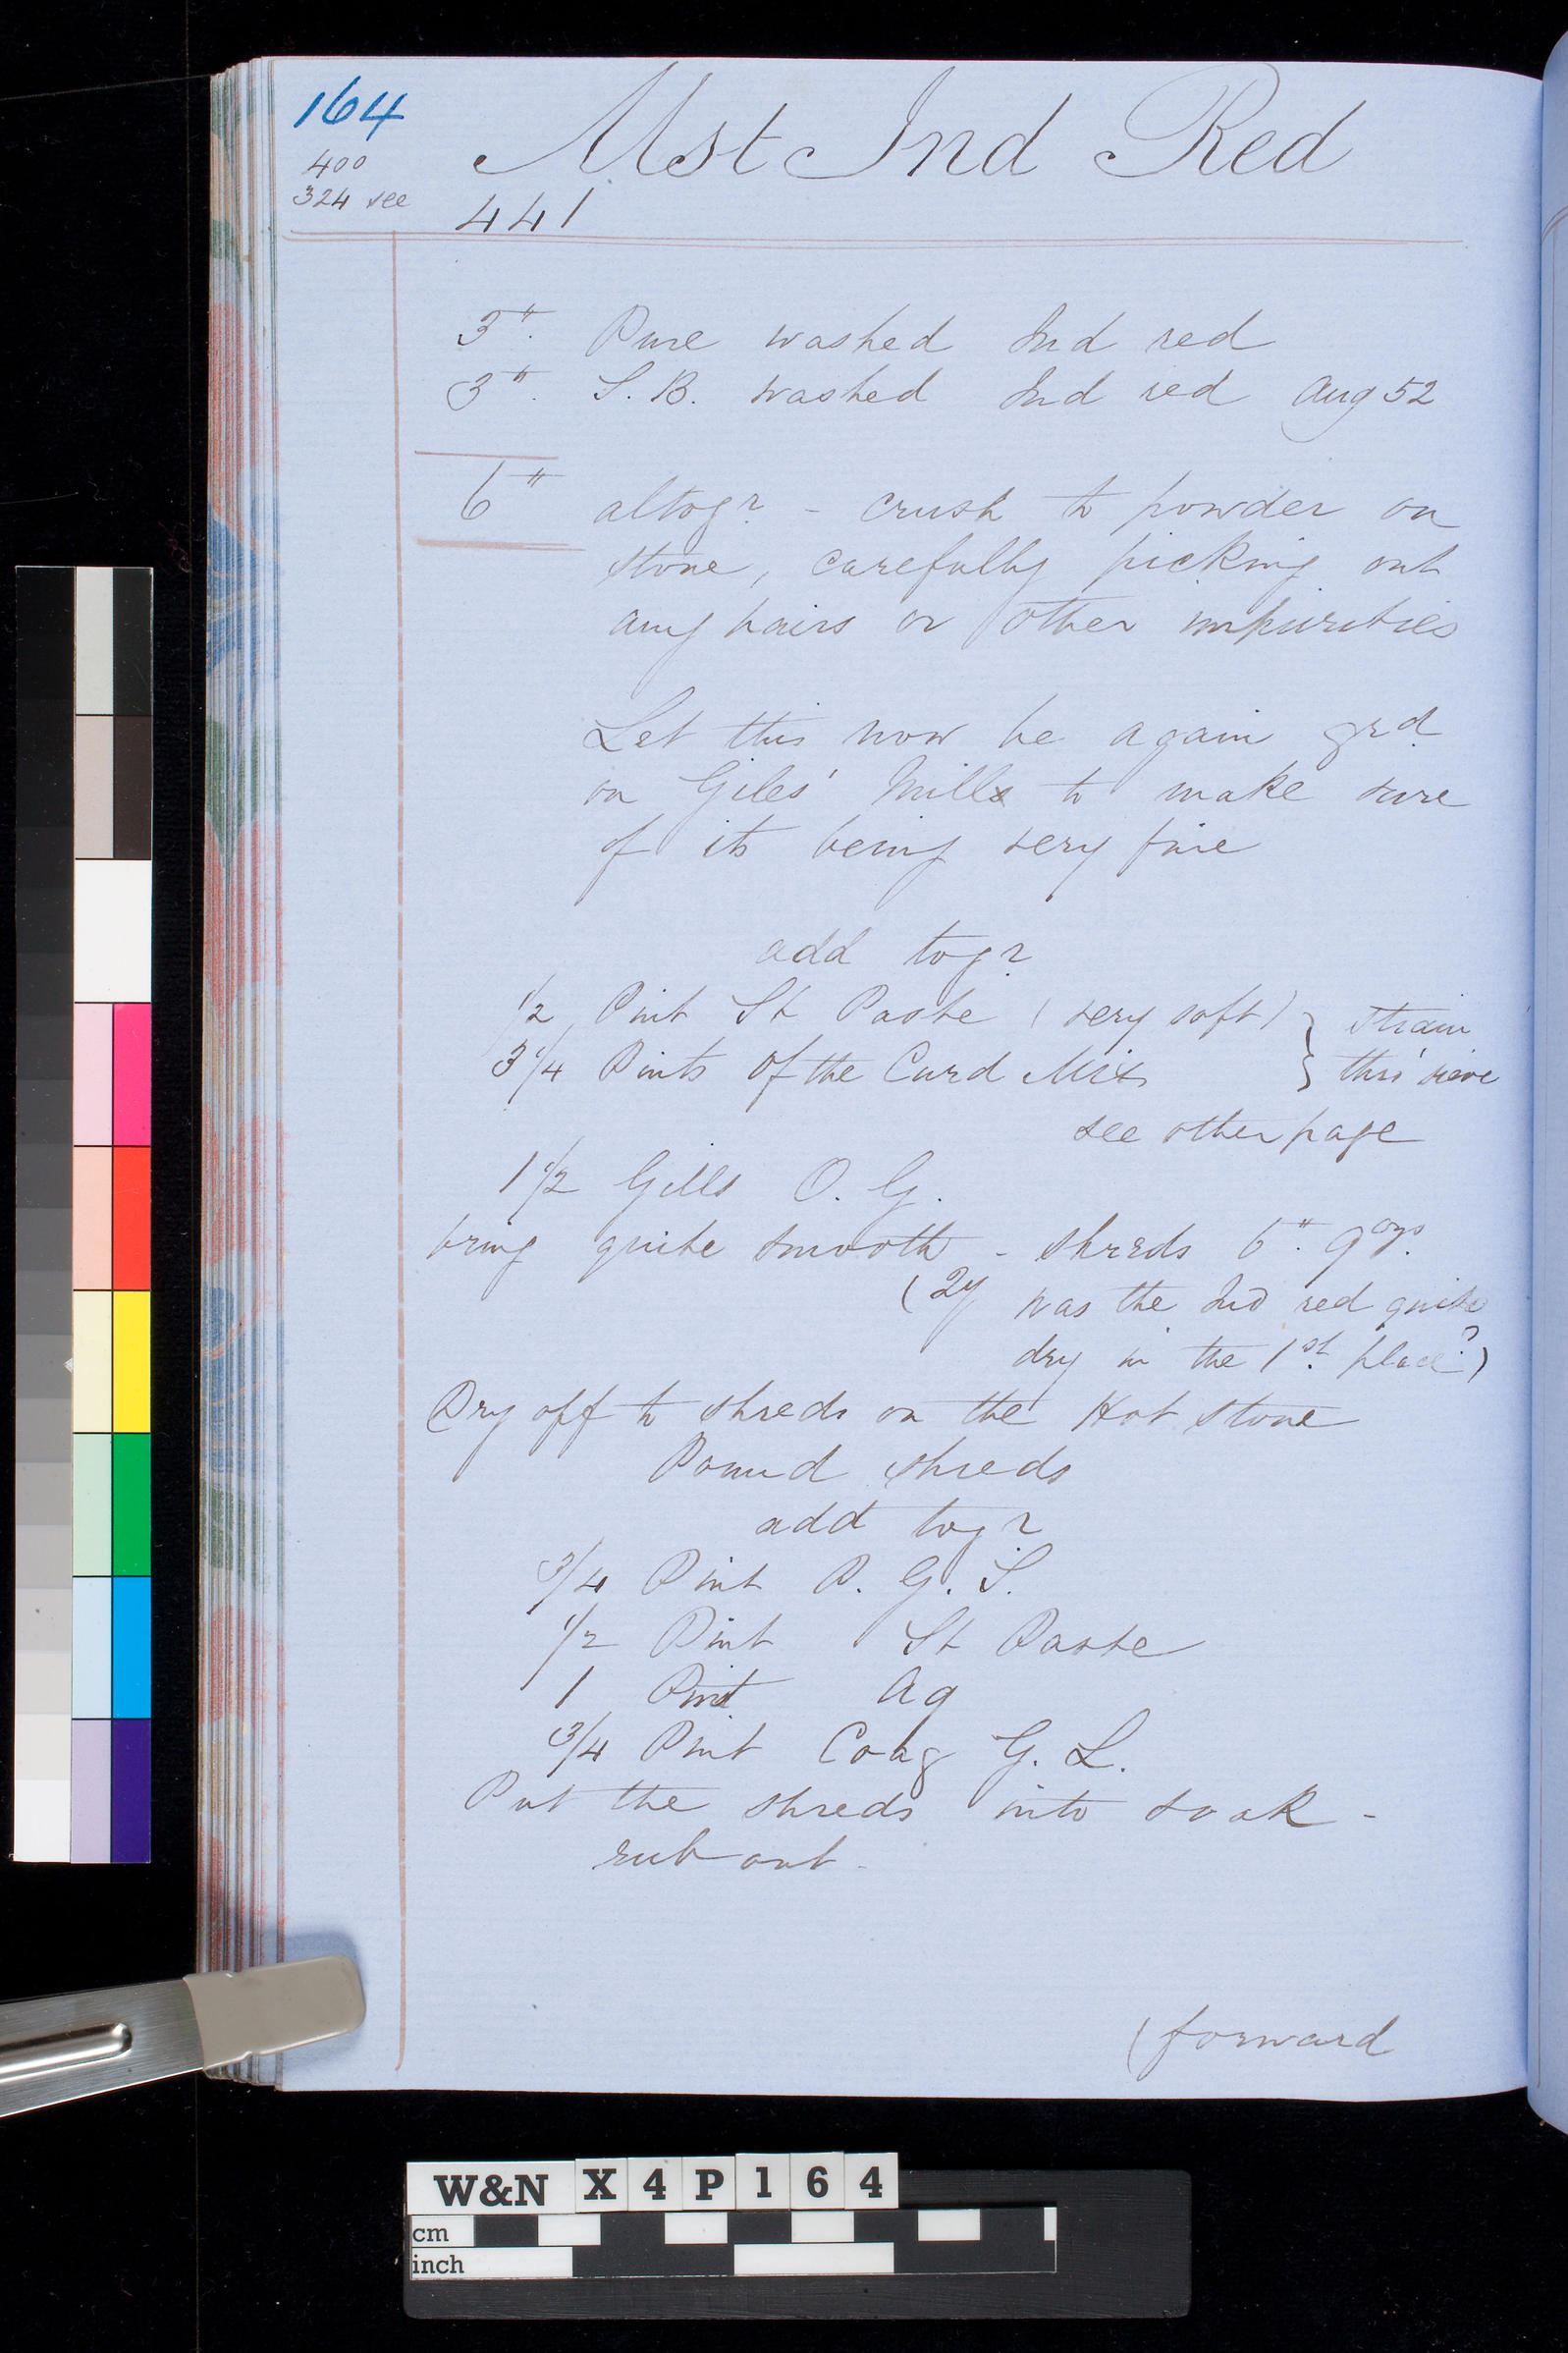 164
400
324 see
Mst Ind Red
441
3" Pure washed Ind red
3" S.B. washed Ind red Aug 52
6" altogr - crush to powder on
stone, carefully picking out
any hairs or other impurities
Let this now be again grd
on Giles' Mills to make sure
of its being very fine
add togr
1/2 Pint St Paste (very soft) } strain
3 1/4 Pints of the Curd Mix } thro' sieve
see other page
1 1/2 Gills O. G.
bring quite smooth - shreds 6" 9 ozs.
(Qy was the Ind red quite
dry in the 1st place?)
Dry off to shreds on the Hot stone
Pound shreds
add togr
3/4 Pint P. G. S.
1/2 Pint St Paste
1 Pint Aq
3/4 Pint Coag G. L.
Put the shreds into soak -
rub out -
(forward
W&N X4P164
cm
inch